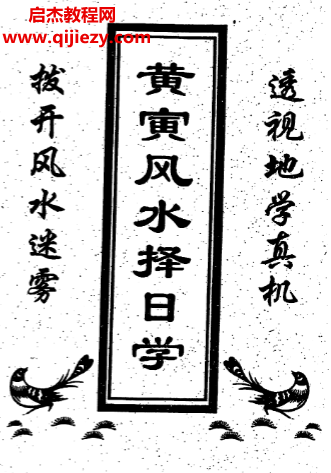 启杰教程网
www.qijiezy.com
透视地学真机
黄寅风水择日学
拨开风水迷雾